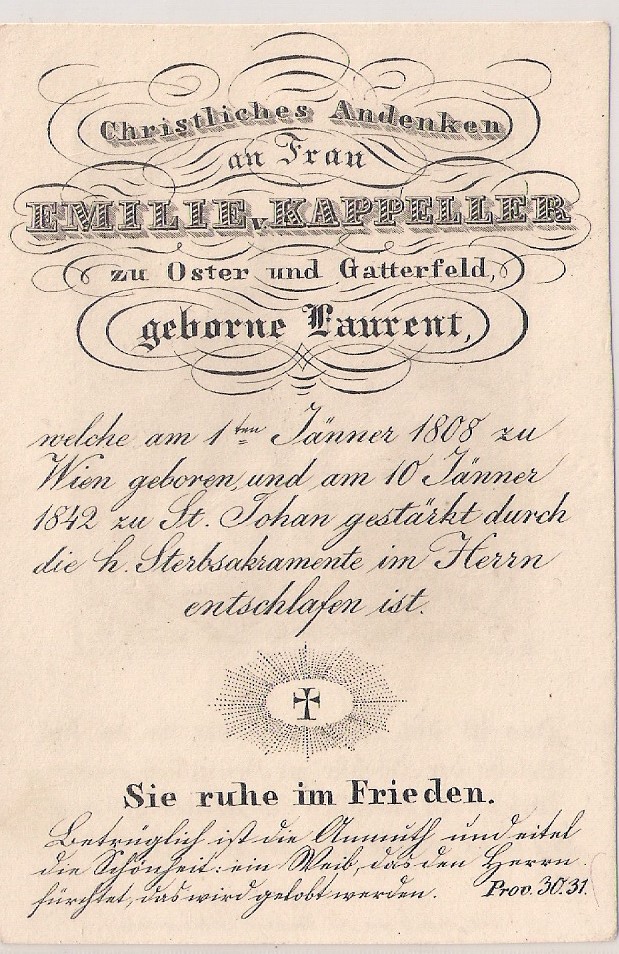 Christliches Andenken
an Frau
EMILIE v. KAPPELLER
zu Oster und Gatterfeld,
geborne Laurent,
welche am 1ten Jänner 1808 zu
Wien geboren, und am 10 Jänner
1842 zu St. Johan gestärkt durch
die h. Sterbsakramente im Herrn
entschlafen ist.
Sie ruhe im Frieden.
Betrüglich ist die Anmuth und eitel
die Schönheit: ein Weib, das den Herrn
fürchtet, das wird gelobt werden. Prov. 30.31.